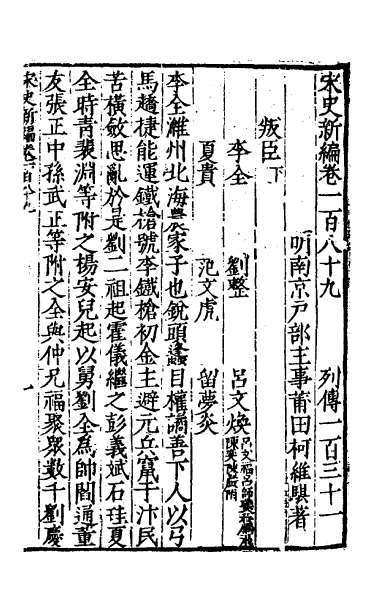 宋史新編卷一百八十九　列傳一百三十一
明南京戸部主事莆田柯維騏著
叛臣下
李全　劉整　呂文煥
夏貴　范文虎　留夢炎
李全濰州北海農家子也銳頭蠭目權譎善下人以弓
馬趫捷能運鐵槍號李鐵槍初金主避元兵竄于汴民
苦橫斂思亂於是劉二祖起霍儀繼之彭義斌石珪夏
全時青裴淵等附之楊安兒起以舅劉全為帥閻通董
友張正中孫武正等附之全與仲兄福聚衆數千劉慶
宋史新編卷一百八十九　一